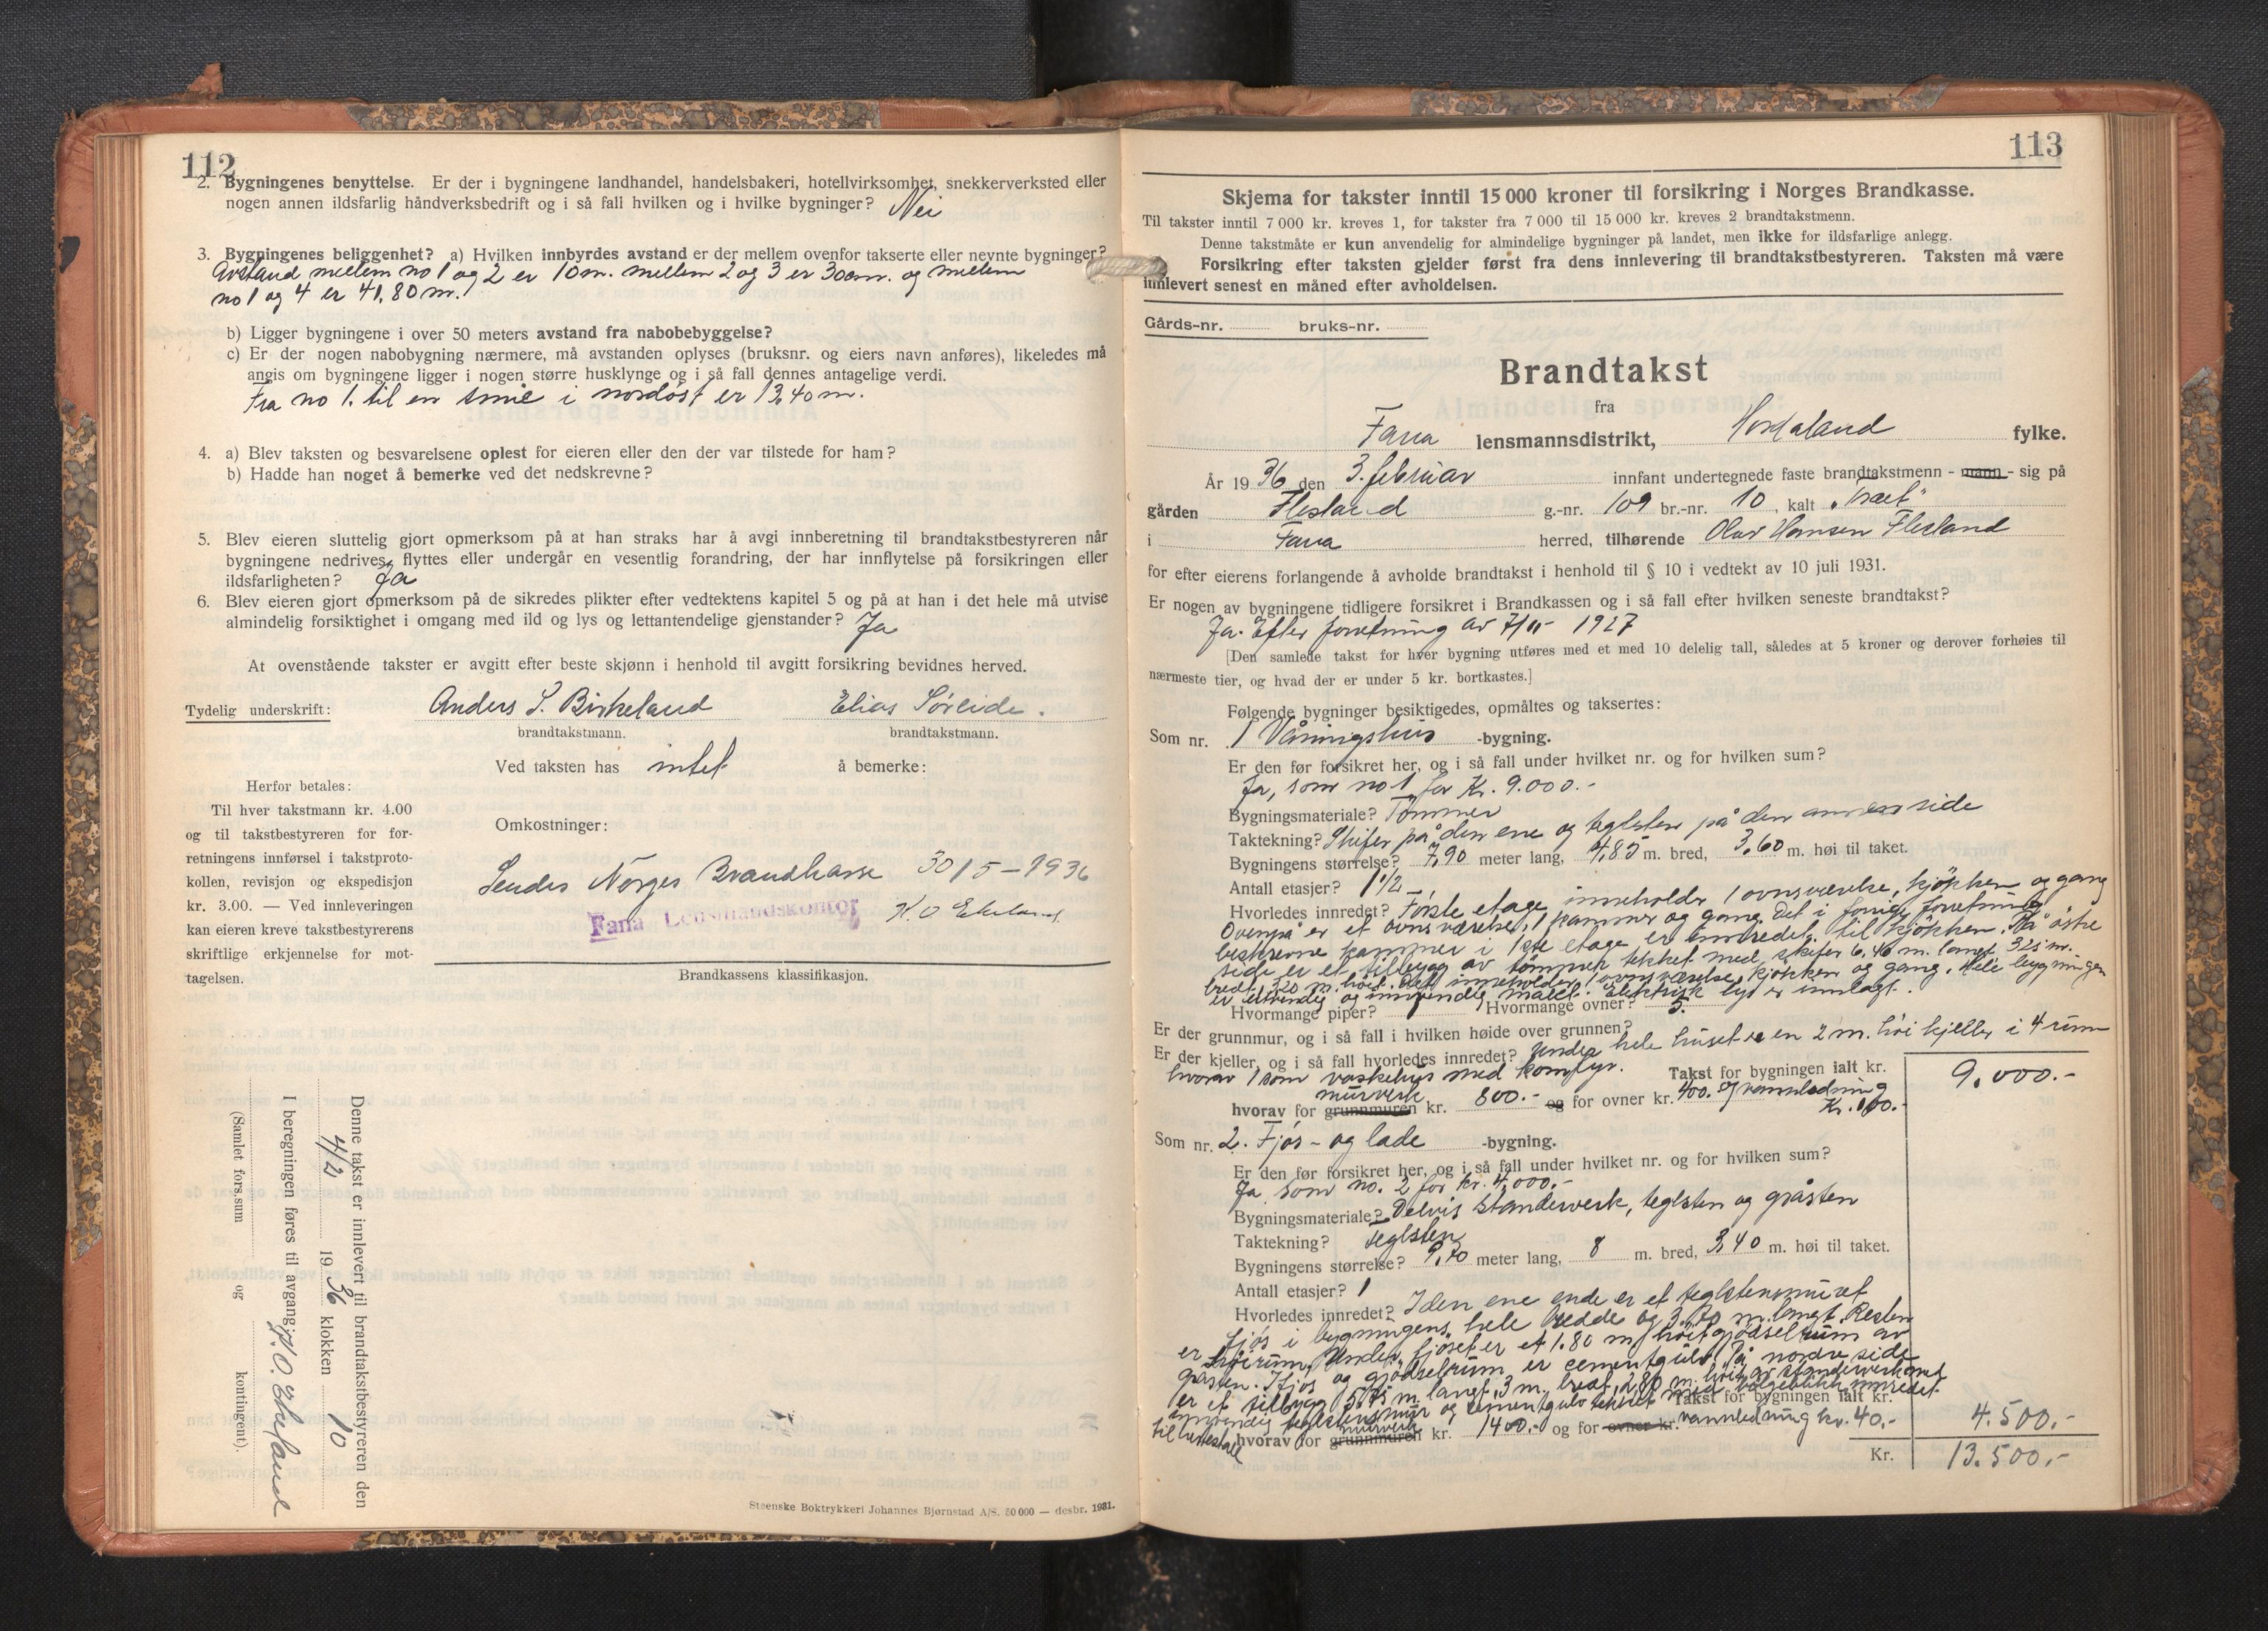 112
2. Bygningenes benyttelse. Er der i bygningene landhandel, handelsbakeri, hotellvirksomhet, snekkerverksted eller
nogen annen ildsfarlig håndverksbedrift og i så fall hvilken og i hvilke bygninger? Nei
3. Bygningenes beliggenhet? a) Hvilken innbyrdes avstand er der mellem ovenfor takserte eller nevnte bygninger?
Avstand mellem no 1 og 2 er 10 m. mellem 2 og 3 er 30 cm. og mellem
no 1 og 4 er 41,80 m.
b) Ligger bygningene i over 50 meters avstand fra nabobebyggelse?
c) Er der nogen nabobygning nærmere, må avstanden oplyses (bruksnr. og eiers navn anføres), likeledes må
angis om bygningene ligger i nogen større husklynge og i så fall dennes antagelige verdi.
Fra no 1. til en smie i nordöst er 13,40 m.
4. a) Blev taksten og besvarelsene oplest for eieren eller den der var tilstede for ham?
b) Hadde han noget å bemerke ved det nedskrevne?
5. Blev eieren sluttelig gjort opmerksom på at han straks har å avgi innberetning til brandtakstbestyreren når
bygningene nedrives, flyttes eller undergår en vesentlig forandring, der har innflytelse på forsikringen eller
ildsfarligheten? Ja
6. Blev eieren gjort opmerksom på de sikredes plikter efter vedtektens kapitel 5 og på at han i det hele må utvise
almindelig forsiktighet i omgang med ild og lys og lettantendelige gjenstander? Ja
At ovenstående takster er avgitt efter beste skjønn i henhold til avgitt forsikring bevidnes herved.
Tydelig underskrift: Anders S. Birkeland Elias Söreide.
brandtakstmann. brandtakstmann.
Ved taksten has intet å bemerke:
Herfor betales:
Til hver takstmann kr. 4.00
og til takstbestyreren for for-
retningens innførsel i takstproto-
kollen, revisjon og ekspedisjon
kr. 3.00. — Ved innleveringen
kan eieren kreve takstbestyrerens
skriftlige erkjennelse for mot-
tagelsen.
Omkostninger:
Sendes Norges Brandkasse 30/5-1936
Fana Lensmandskontor K. O Ekeland
Brandkassens klassifikasjon.
Denne takst er innlevert til brandtakstbestyreren den
4/2 1936 klokken 10
I beregningen føres til avgang: K. O. Ekeland
(Samlet fors.sum og kontingent).
Steenske Boktrykkeri Johannes Bjørnstad A/S. 50 000 — desbr. 1931.
113
Skjema for takster inntil 15 000 kroner til forsikring i Norges Brandkasse.
Til takster inntil 7 000 kr. kreves 1, for takster fra 7 000 til 15 000 kr. kreves 2 brandtakstmenn.
Denne takstmåte er kun anvendelig for almindelige bygninger på landet, men ikke for ildsfarlige anlegg.
Forsikring efter taksten gjelder først fra dens innlevering til brandtakstbestyreren. Taksten må være
innlevert senest en måned efter avholdelsen.
Gårds-nr. bruks-nr.
Brandtakst
fra
Fana lensmannsdistrikt, Hordaland fylke.
År 1936 den 3. februar innfant undertegnede faste brandtakstmenn - mann - sig på
gården Flesland g.-nr. 109 br.-nr. 10, kalt
i Fana herred, tilhørende Olav Hansen Flesland
for efter eierens forlangende å avholde brandtakst i henhold til § 10 i vedtekt av 10 juli 1931.
Er nogen av bygningene tidligere forsikret i Brandkassen og i så fall efter hvilken seneste brandtakst?
Ja. Efter forretning av 7/11- 1927
[Den samlede takst for hver bygning utføres med et med 10 delelig tall, således at 5 kroner og derover forhøies til
nærmeste tier, og hvad der er under 5 kr. bortkastes.]
Følgende bygninger besiktigedes, opmåltes og taksertes:
Som nr. 1 Våningshus -bygning.
Er den før forsikret her, og i så fall under hvilket nr. og for hvilken sum?
Ja, som no 1 for Kr. 9.000.-
Bygningsmateriale? Tömmer
Taktekning? Skifer på den ene og teglsten på den annen side
Bygningens størrelse? 7,90 meter lang, 4,85 m. bred, 3,60 m. høi til taket.
Antall etasjer? 1 1/2
Hvorledes innredet? Förste etage inneholder 1 ovnsværelse, kjökken og gang
Ovenpå er et ovnsværelse, 1 kammer og gang. Det i forrige forretning
beskrevne kammer i 1ste etage er innredet til kjökken. På östre
side er et tilbygg av tömmer tekket med skifer 6,40 m. langt 3,25 m.
bredt, 3,20 m. höit. Det inneholder 1 ovnsværelse, kjökken og gang. Hele bygningen
er utvendig og innvendig malet. Elektrisk lys er innlagt.
Hvormange piper? 1 Hvormange ovner? 5.
Er der grunnmur, og i så fall i hvilken høide over grunnen?
Er der kjeller, og i så fall hvorledes innredet? Under hele huset er en 2 m. höi kjeller i 4 rum
hvorav 1 som vaskehus med komfyr. Takst for bygningen ialt kr. 9.000.-
murverk
hvorav for grunnmuren kr. 800.- og for ovner kr. 400. og vannledning
Kr. 100.-
Som nr. 2. Fjös- og lade -bygning.
Er den før forsikret her, og i så fall under hvilket nr. og for hvilken sum?
Ja som no. 2 for kr. 4,000.-
Bygningsmateriale? Delvis standerverk, teglsten og gråsten
Taktekning? Teglsten
Bygningens størrelse? 9,70 meter lang, 8 m. bred, 3,40 m. høi til taket.
Antall etasjer? 1
Hvorledes innredet? I den ene ende er et teglstensmuret
fjös i bygningens hele bredde og 3,70 m. langt. Resten
er höirum. Under fjöset er et 1.80 m. höit gjödselrum av
gråsten. I fjös og gjödselrum er cementgulv. På nordre side
er et tilbygg 5,75 m. langt, 3 m. bredt, 2,80 m. höit, av standerverk med
innvendig teglstensmur og cementgulv tekket med bölgeblikk innredet
Takst for bygningen ialt kr. 4.500.-
til hestestall murverk
hvorav for grunnmuren kr. 1400.- og for ovner kr. vannledning kr. 40,-
Kr. 13.500,-